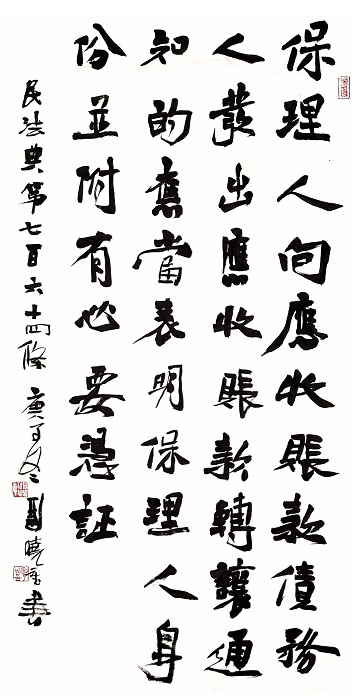 保理人向應收賬款債務
人發出應收賬款轉讓通
知的應當表明保理人身
份並附有必要憑証
民法典第七百六十四條 庚子冬 劉曉 書